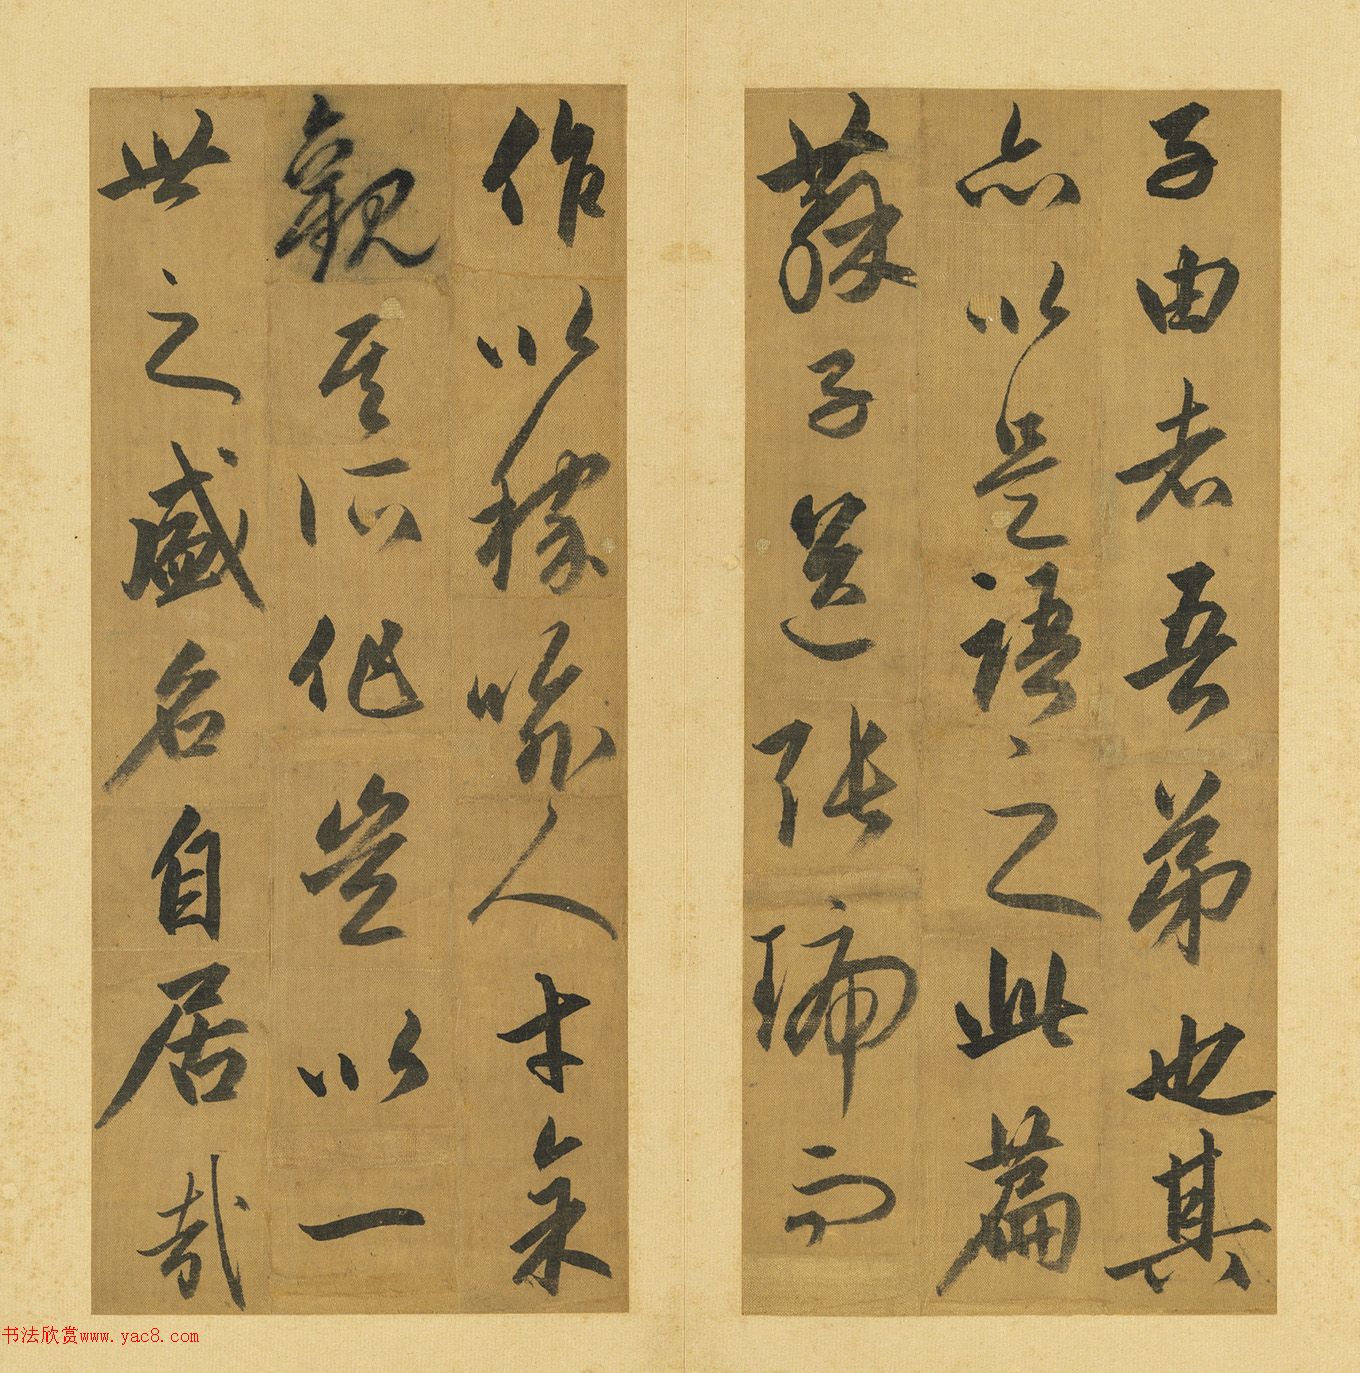 子由者吾弟也其
亦以是語之此篇
蘇子送張琥而
作以稼喻人才矣
觀其所作豈以一
世之盛名自居哉
书法欣赏www.yac8.com